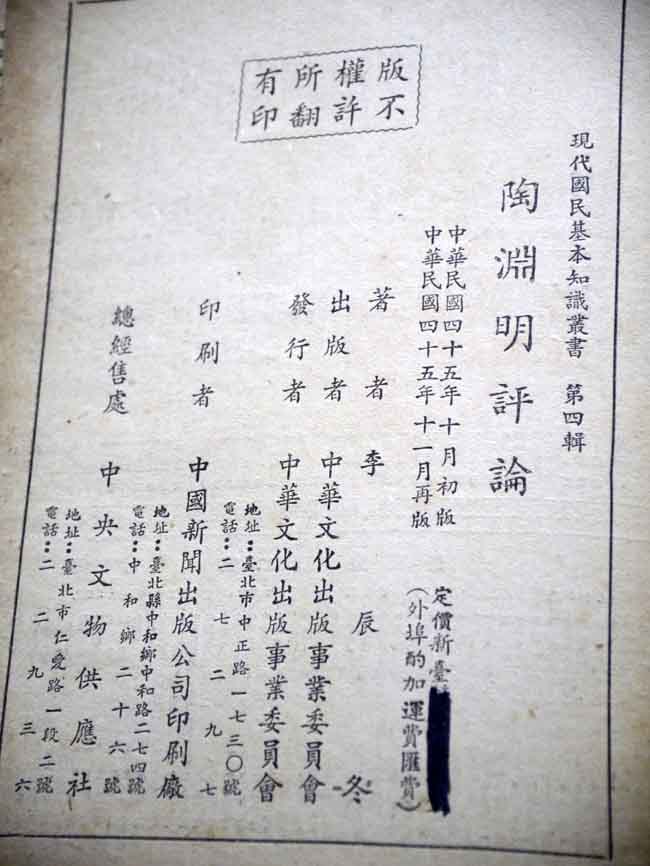 版權所有
不許翻印
現代國民基本知識叢書 第四輯
陶淵明評論
中華民國四十五年十月初版
中華民國四十五年十一月再版
定價新臺
(外埠酌加運費匯費)
著者 李辰冬
出版者 中華文化出版事業委員會
發行者 中華文化出版事業委員會
地址：臺北市中正路一七三〇號
電話：二七二九七
印刷者 中國新聞出版公司印刷廠
地址：臺北縣中和鄉中和路二七四號
電話：中和鄉二十六號
總經售處 中央文物供應社
地址：臺北市仁愛路一段二號
電話：二二九三六